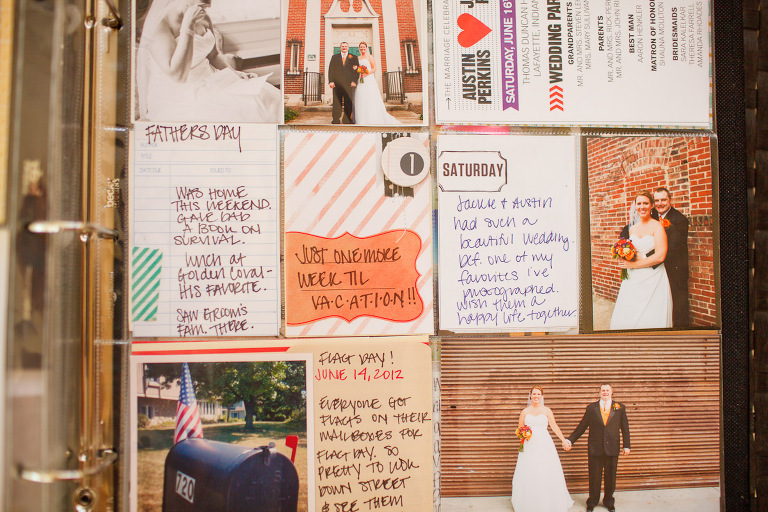 THE MARRIAGE CELEBRA
JUSTIN
AUSTIN
PERKINS
SATURDAY, JUNE 16
THOMAS DUNCAN H
LAFAYETTE, INDIAN
WEDDING PAR
GRANDPARENTS
MR. AND MRS. STEVEN LE
MRS. MARY SULLIVAN
PARENTS
MR. AND MRS. RICK PERK
MR. AND MRS. TONY R
BEST MAN
AARON HENKLER
MATRON OF HONOR
SHAUNA MOULTON
BRIDESMAIDS
SARA KALLEKAR
THERESA FARRELL
AMANDA RHOADES
FATHERS DAY
TITLE
DATE DUE
ISSUED TO
WAS HOME
THIS WEEKEND.
GAVE DAD
A BOOK ON
SURVIVAL.
LUNCH AT
GOLDEN CORAL-
HIS FAVORITE.
SAW GROOM'S
FAM. THERE.
1
JUST ONE MORE
WEEK TIL
V.A.C.A.T.I.O.N!!
SATURDAY
Jackie + Austin
had such a
beautiful wedding.
Def. one of my
favorites i've
photographed.
wish them a
happy life together.
FLAG DAY!
JUNE 14, 2012
EVERYONE GOT
FLAGS ON THEIR
MAILBOXES FOR
FLAG DAY. SO
PRETTY TO LOOK
DOWN STREET
& SEE THEM
720